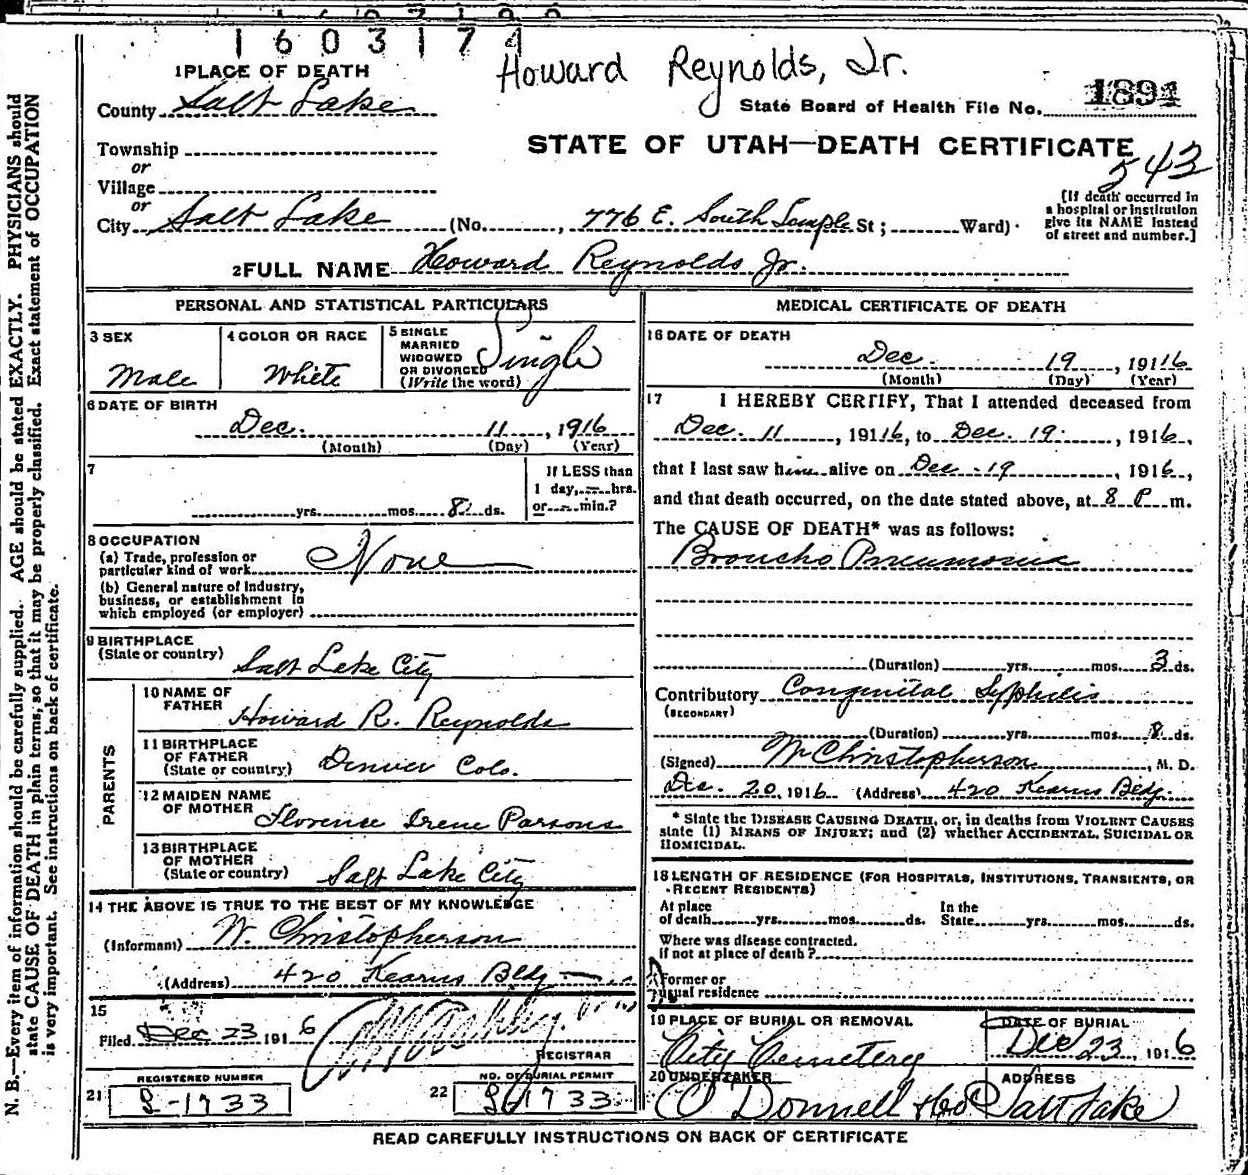 1603174
Howard Reynolds, Jr.
1 PLACE OF DEATH
County Salt Lake
State Board of Health File No. 1891
STATE OF UTAH—DEATH CERTIFICATE
543
Township
or
Village
or
City Salt Lake (No. , 776 E. South Temple St ; Ward)
[If death occurred in
a hospital or institution
give its NAME instead
of street and number.]
2 FULL NAME Howard Reynolds Jr.
PERSONAL AND STATISTICAL PARTICULARS
3 SEX
Male
4 COLOR OR RACE
White
5 SINGLE
MARRIED
WIDOWED
OR DIVORCED
(Write the word)
Single
6 DATE OF BIRTH
Dec. 11, 1916
(Month) (Day) (Year)
7
yrs. mos. 8 ds.
If LESS than
1 day, — hrs.
or — min.?
8 OCCUPATION
(a) Trade, profession or
particular kind of work None
(b) General nature of industry,
business, or establishment in
which employed (or employer)
9 BIRTHPLACE
(State or country) Salt Lake City
PARENTS
10 NAME OF
FATHER Howard R. Reynolds
11 BIRTHPLACE
OF FATHER
(State or country) Denver Colo.
12 MAIDEN NAME
OF MOTHER Florence Irene Parsons
13 BIRTHPLACE
OF MOTHER
(State or country) Salt Lake City
14 THE ABOVE IS TRUE TO THE BEST OF MY KNOWLEDGE
(Informant) W. Christopherson
(Address) 420 Kearns Bldg
15
Filed Dec 23 1916
REGISTRAR
REGISTERED NUMBER
21 S-1733
NO. OF BURIAL PERMIT
22 S-1733
MEDICAL CERTIFICATE OF DEATH
16 DATE OF DEATH
Dec. 19, 19116
(Month) (Day) (Year)
17 I HEREBY CERTIFY, That I attended deceased from
Dec. 11, 19116, to Dec. 19, 1916,
that I last saw him alive on Dec. 19, 1916,
and that death occurred, on the date stated above, at 8 P m.
The CAUSE OF DEATH* was as follows:
Broncho Pneumonia
(Duration) yrs. mos. 3 ds.
Contributory Congenital Syphilis
(SECONDARY)
(Duration) yrs. mos. 8 ds.
(Signed) W Christopherson, M. D.
Dec. 20, 1916 (Address) 420 Kearns Bldg.
* State the DISEASE CAUSING DEATH, or, in deaths from VIOLENT CAUSES
state (1) MEANS OF INJURY; and (2) whether ACCIDENTAL, SUICIDAL OR
HOMICIDAL.
18 LENGTH OF RESIDENCE (FOR HOSPITALS, INSTITUTIONS, TRANSIENTS, OR
RECENT RESIDENTS)
At place
of death yrs. mos. ds.
In the
State yrs. mos. ds.
Where was disease contracted.
if not at place of death ?
Former or
usual residence
19 PLACE OF BURIAL OR REMOVAL
City Cemetery
DATE OF BURIAL
Dec 23, 1916
20 UNDERTAKER
O'Donnell & Co
ADDRESS
Salt Lake
READ CAREFULLY INSTRUCTIONS ON BACK OF CERTIFICATE
N. B.—Every item of information should be carefully supplied. AGE should be stated EXACTLY. PHYSICIANS should
state CAUSE OF DEATH in plain terms, so that it may be properly classified. Exact statement of OCCUPATION
is very important. See instructions on back of certificate.